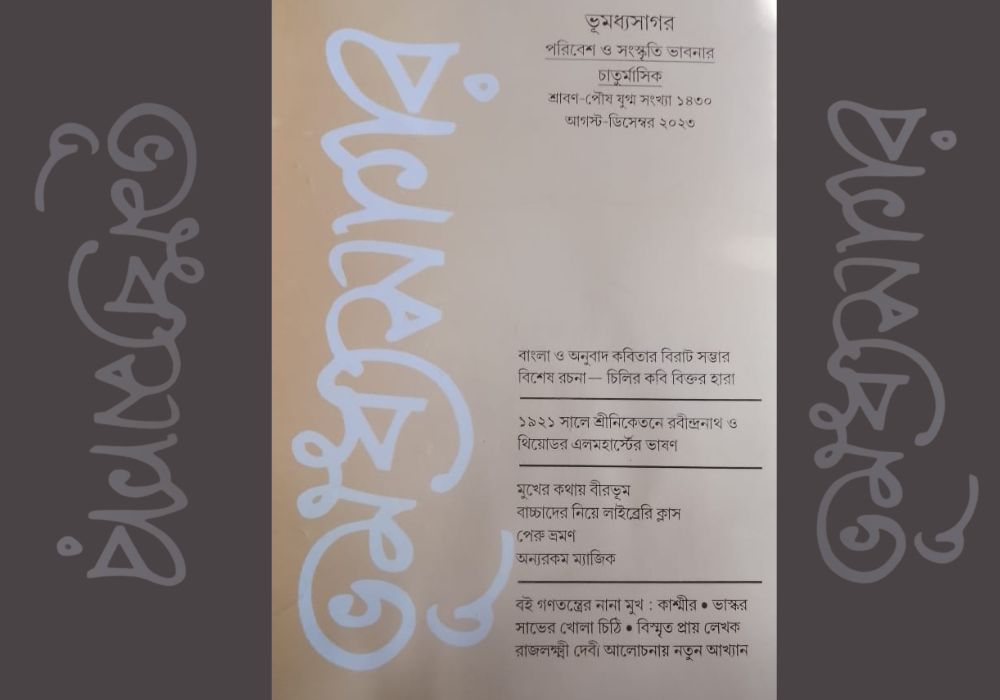 ভূমধ্যসাগর
পরিবেশ ও সংস্কৃতি ভাবনার
চাতুর্মাসিক
শ্রাবণ-পৌষ যুগ্ম সংখ্যা ১৪৩০
আগস্ট-ডিসেম্বর ২০২৩
ভূমধ্যসাগর
বাংলা ও অনুবাদ কবিতার বিরাট সম্ভার
বিশেষ রচনা— চিলির কবি বিক্তর হারা
১৯২১ সালে শ্রীনিকেতনে রবীন্দ্রনাথ ও
থিয়োডর এলমহার্স্টের ভাষণ
মুখের কথায় বীরভূম
বাচ্চাদের নিয়ে লাইব্রেরি ক্লাস
পেরু ভ্রমণ
অন্যরকম ম্যাজিক
বই গণতন্ত্রের নানা মুখ : কাশ্মীর • ভাস্কর
সাভের খোলা চিঠি • বিস্মৃত প্রায় লেখক
রাজলক্ষ্মী দেবী। আলোচনায় নতুন আখ্যান
ভূমধ্যসাগর
ভূমধ্যসাগর